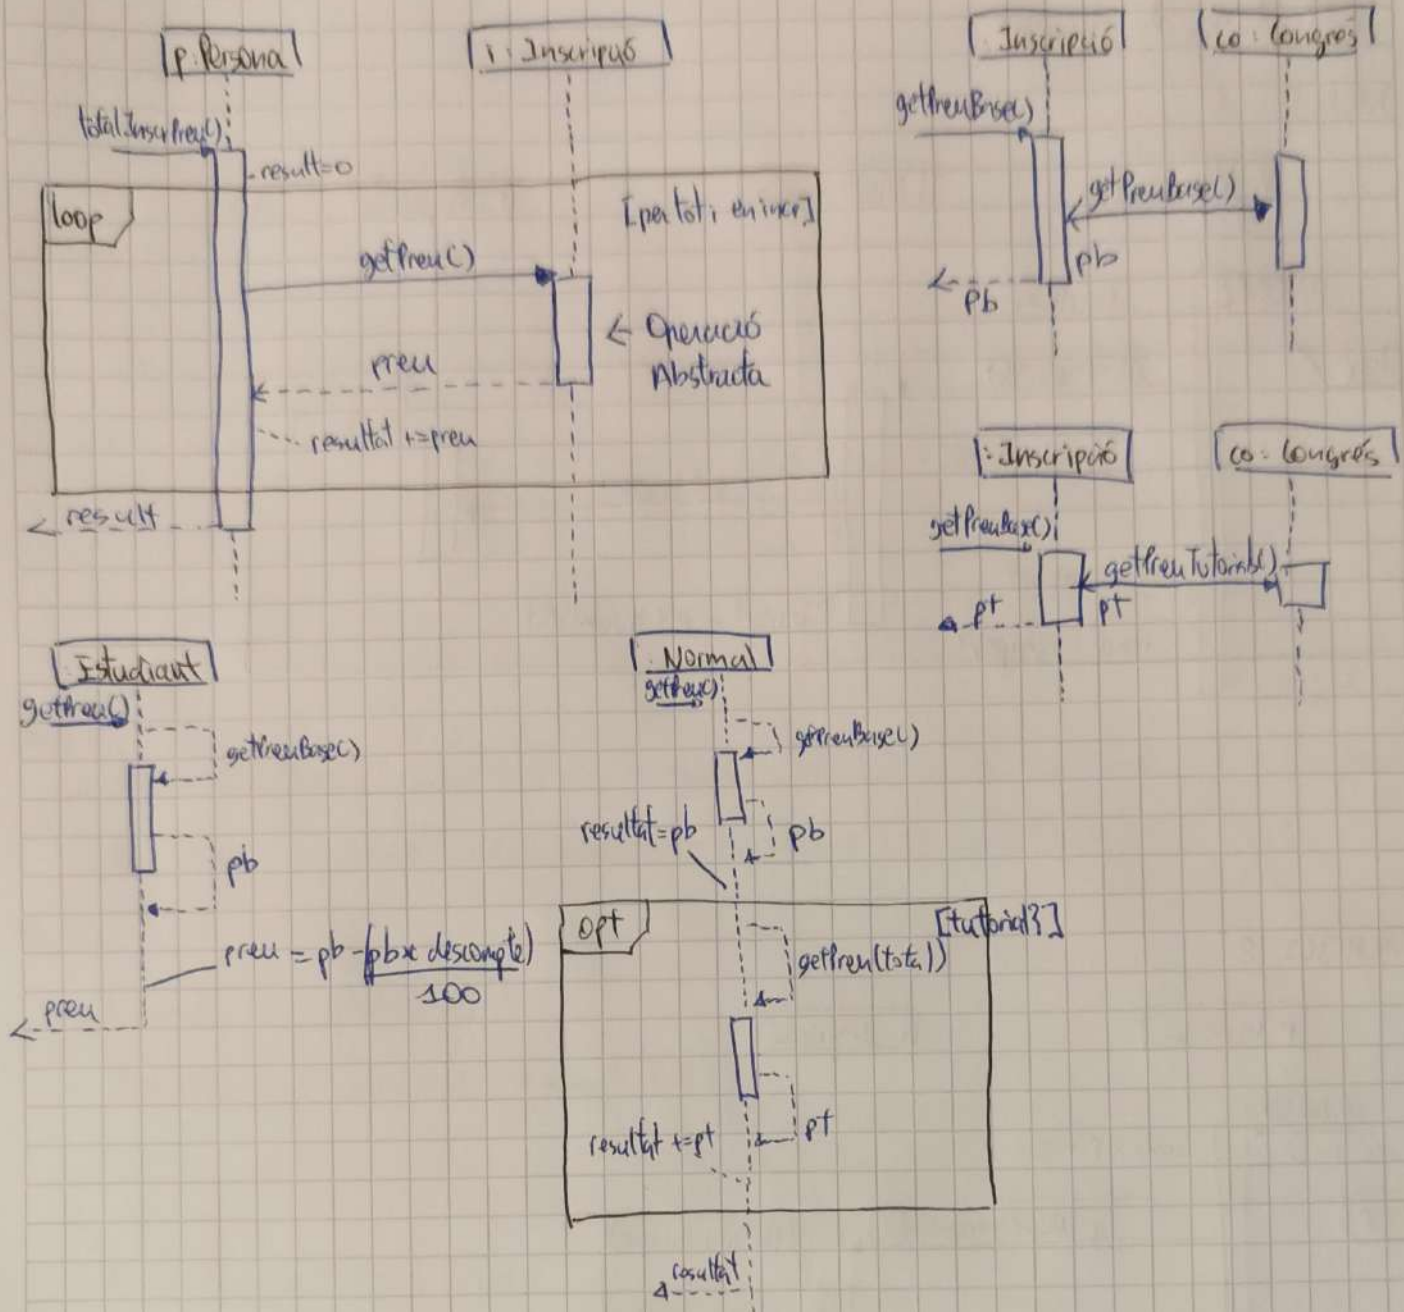 p:Persona
i:Inscripció
totalInscrPreu()
result=0
loop
[per tot i en inscr]
getPreu()
← Operació
Abstracta
preu
resultat +=preu
result
:Inscripció
co:Congrés
getPreuBase()
getPreuBase()
pb
pb
:Inscripció
co:Congrés
getPreuBase()
getPreuTutorials()
pt
pt
:Estudiant
getPreu()
getPreuBase()
pb
preu = pb-(pbx descompte)
100
preu
:Normal
getPreu()
getPreuBase()
resultat=pb
pb
opt
[tutorial?]
getPreu(total)
pt
resultat +=pt
resultat